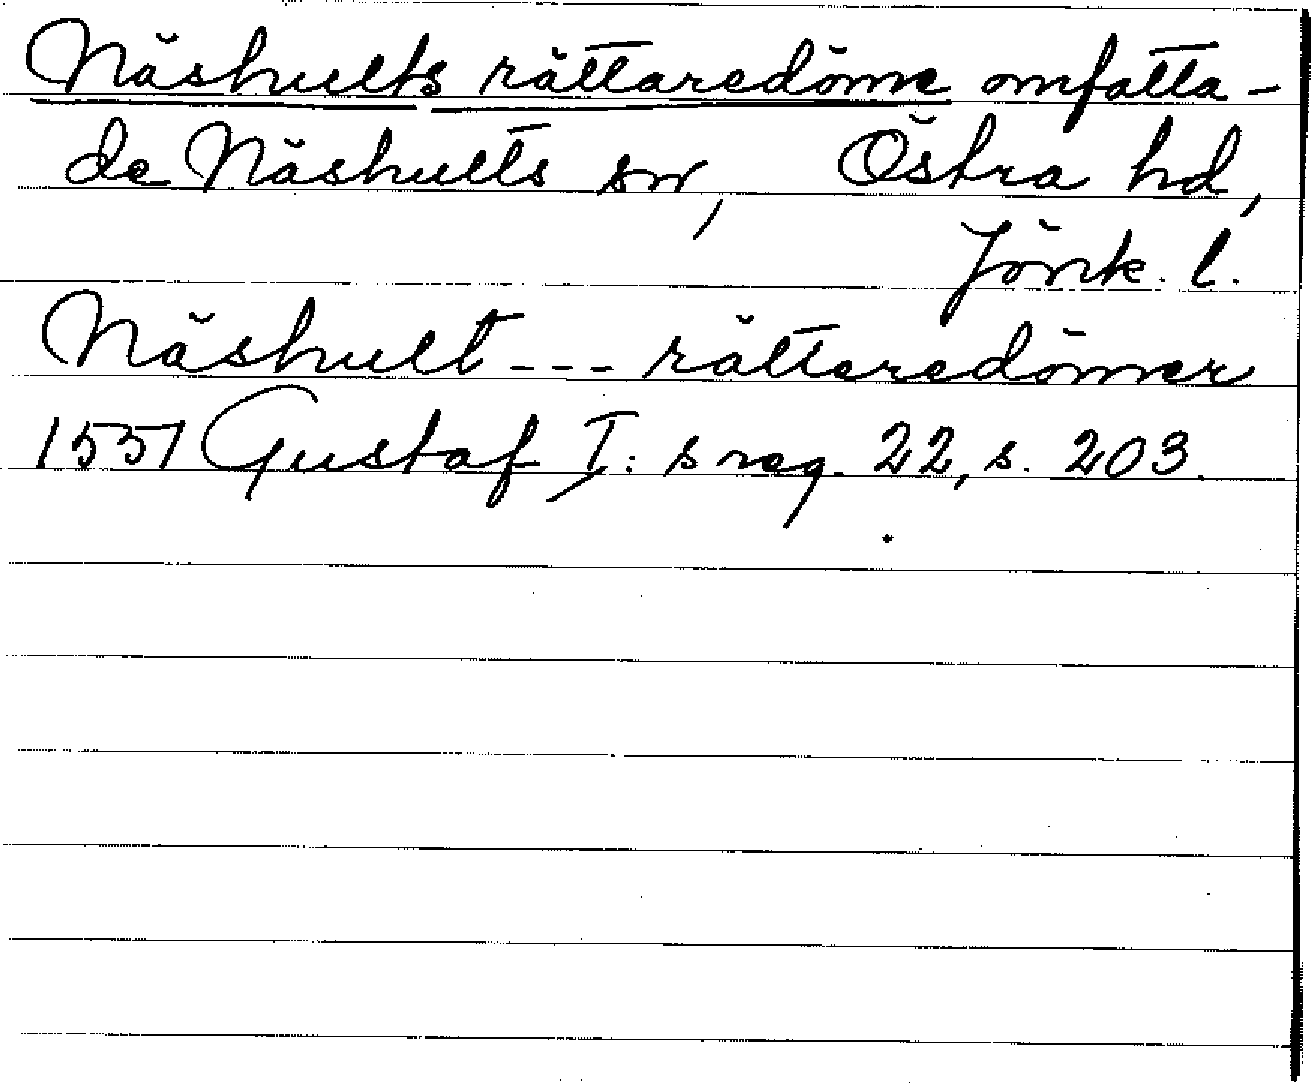 Näshults rättaredöme omfatta-
de Näshults sn, Östra hd,
Jönk. l.
Näshult --- rättaredömer
1551 Gustaf I: s reg. 22, s. 203.